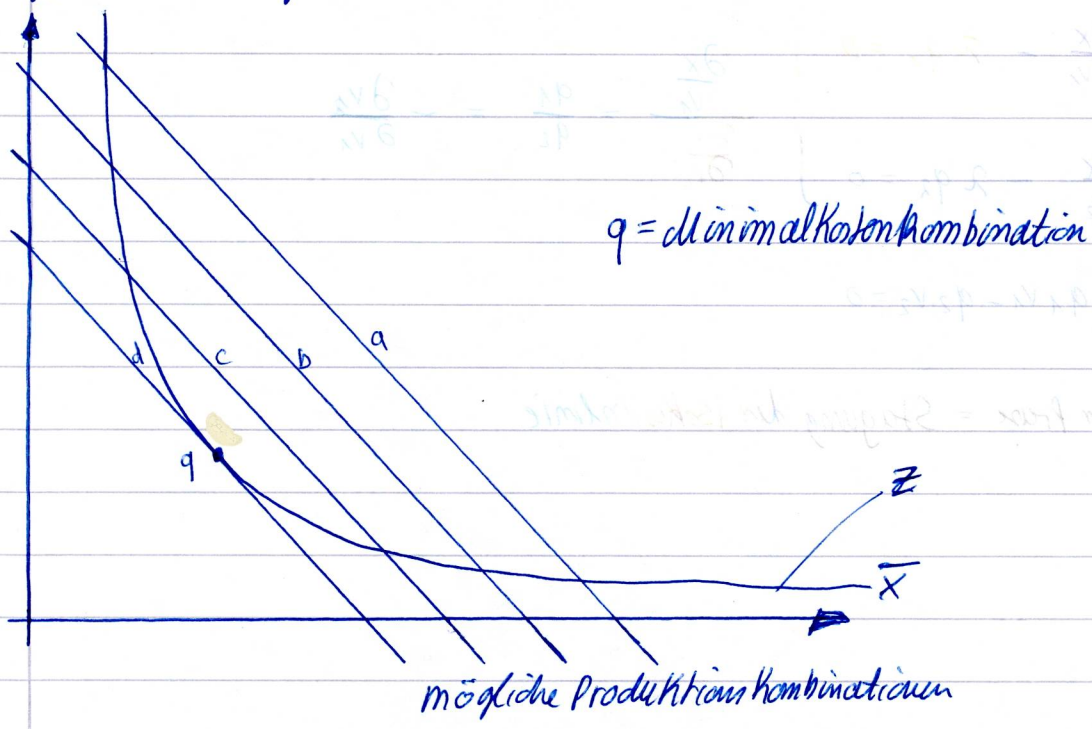 q = Minimalkostenkombination
a
b
c
d
q
Z
X̅
mögliche Produktionskombinationen